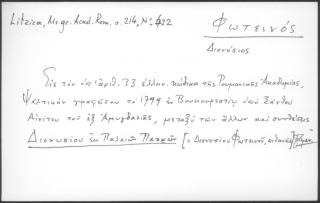 Litzica, Ms gr. Acad. Rom. σ. 214, Nº 422
Φωτεινός
Διονύσιος
Εἰς τὸν ὑπ' ἀριθ. 33 ἑλλην. κώδικα τῆς Ρουμανικῆς Ἀκαδημίας,
Ψαλτικὸν γραφέντα τὸ 1794 ἐν Βουκουρεστίῳ ὑπὸ Ξάνθου
Αἰνίτου τοῦ ἐξ , μεταξὺ τῶν ἄλλων καὶ συνθέσεις
Διονυσίου ἐκ Παλαιῶν Πατρῶν [= Διονυσίου Φωτεινοῦ,